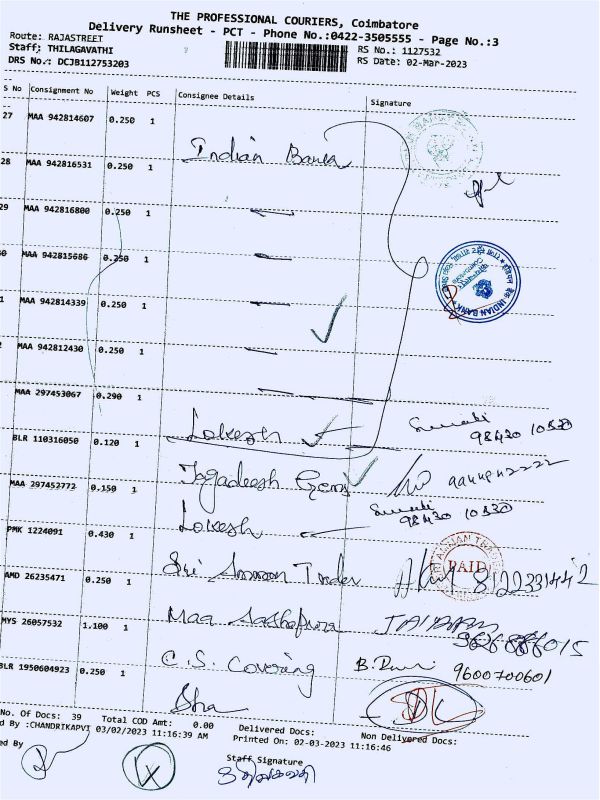 THE PROFESSIONAL COURIERS, Coimbatore
Delivery Runsheet - PCT - Phone No.:0422-3505555 - Page No.:3
Route: RAJASTREET
Staff: THILAGAVATHI RS No.: 1127532
DRS No.: DCJB112753203 RS Date: 02-Mar-2023
S No Consignment No Weight PCS Consignee Details Signature
27 MAA 942814607 0.250 1 Indian Bank
28 MAA 942816531 0.250 1
29 MAA 942816800 0.250 1
0 MAA 942815686 0.250 1
INDIAN BANK
1 MAA 942814339 0.250 1
MAA 942812430 0.250 1
MAA 297453067 0.290 1 Lokesh 98430 10530
BLR 110316050 0.120 1 Jagadeesh Gems
MAA 297452772 0.150 1 Lokesh 98430 10530
PMK 1224091 0.430 1 Sri Amman Trader PAID 8122331442
AMD 26235471 0.250 1 Maa Aashapura JAIRAM
MYS 26057532 1.100 1 C.S. Covering 9600700601
BLR 1950604923 0.250 1
No. Of Docs: 39 Total COD Amt: 0.00 Delivered Docs: Non Delivered Docs:
d By :CHANDRIKAPVI 03/02/2023 11:16:39 AM Printed On: 02-03-2023 11:16:46
ed By Staff Signature